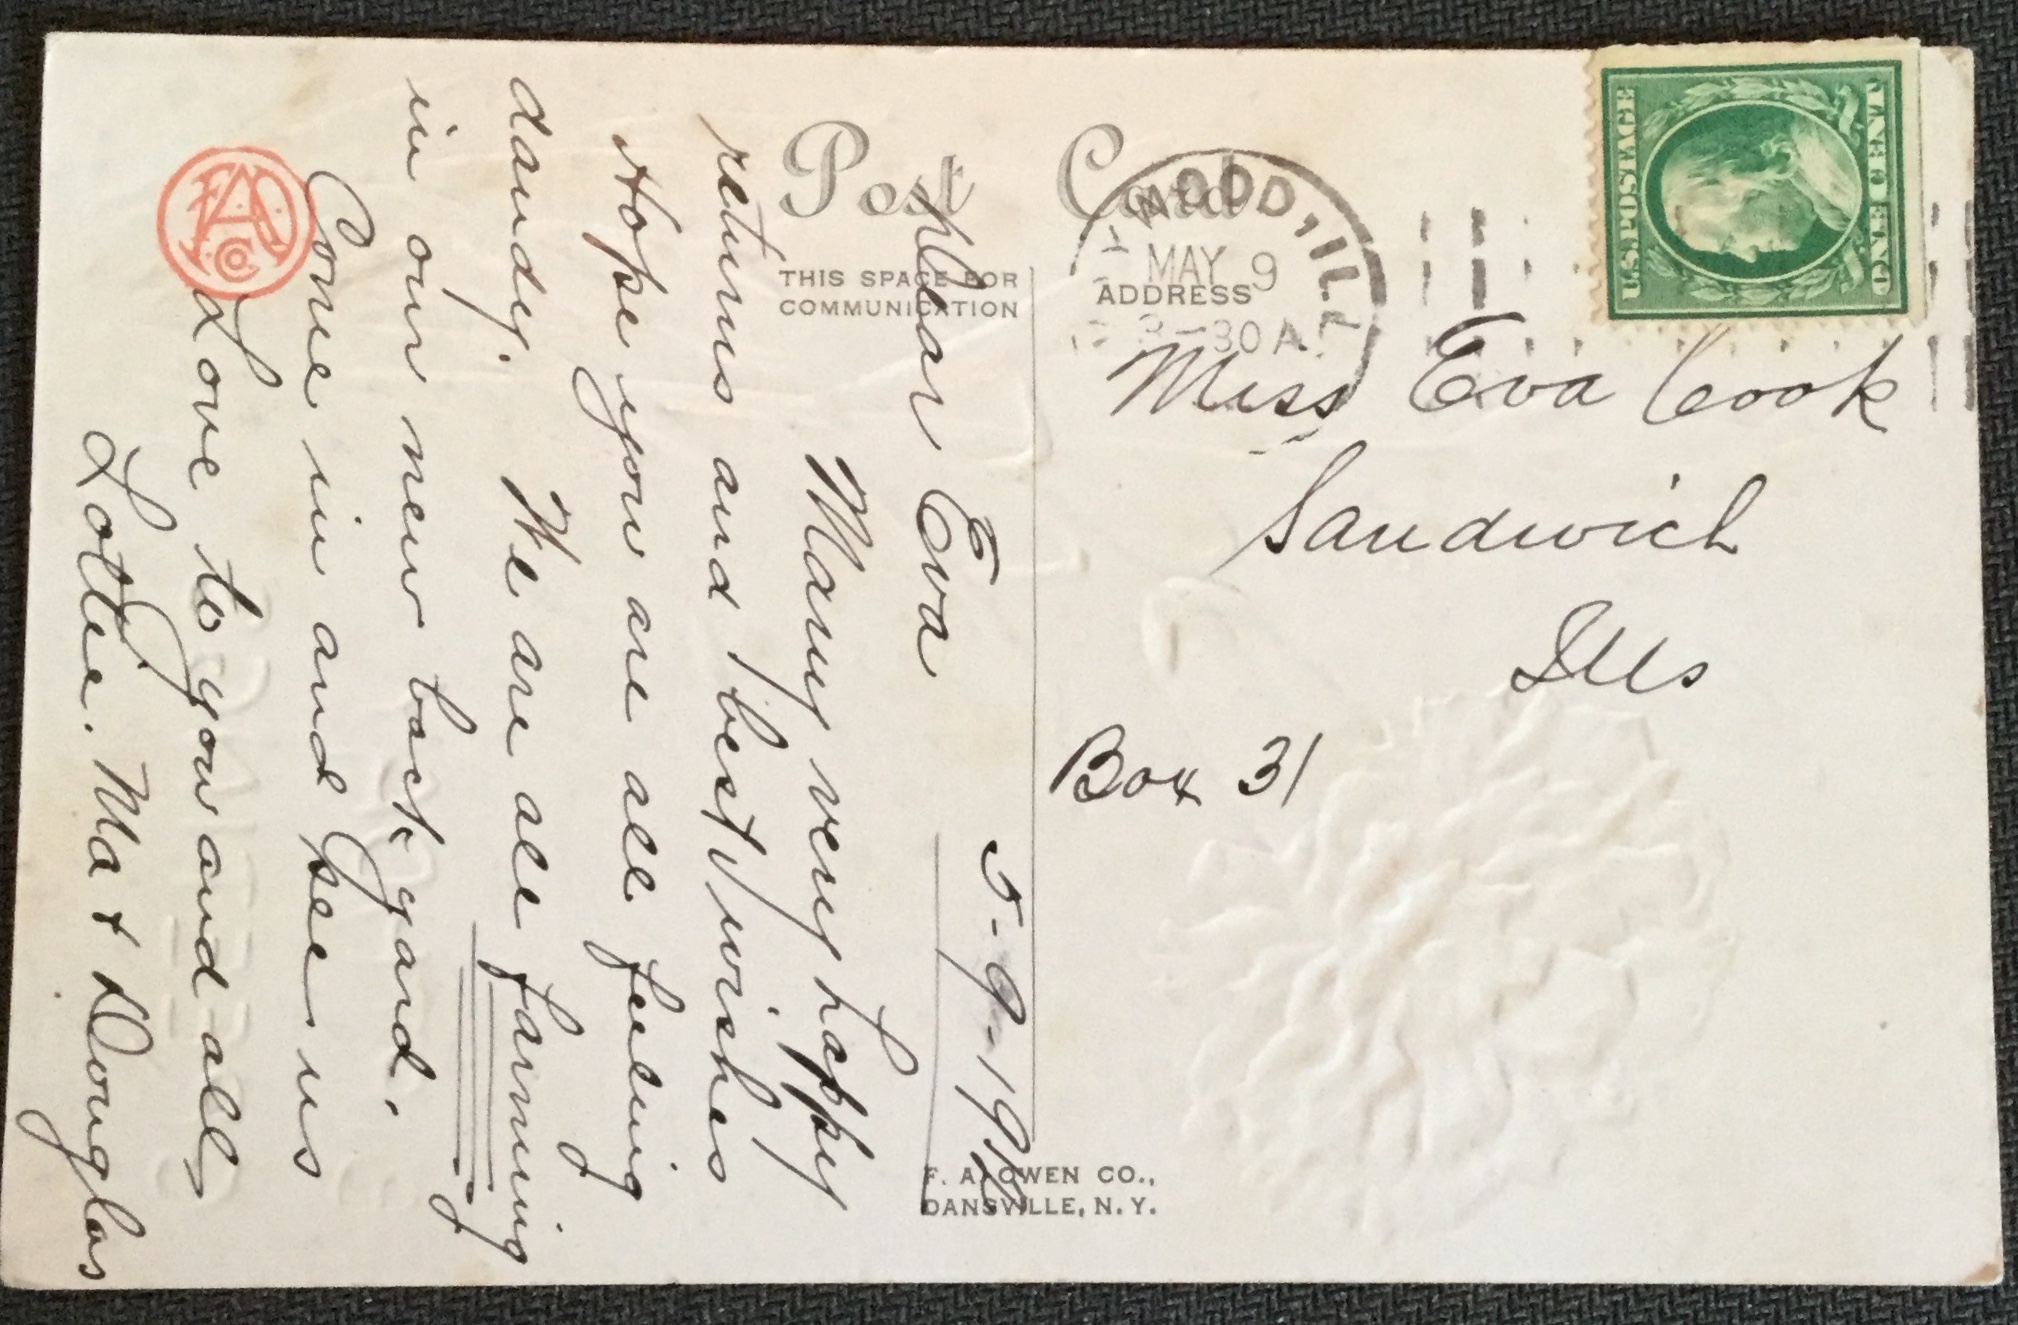 Post Card
THIS SPACE FOR
COMMUNICATION
ADDRESS
MAY 9
30 A
U.S. POSTAGE
ONE CENT
Miss Eva Cook
Sandwich
Ills
Box 31
5-9-191
Dear Eva
Many very happy
returns and best wishes
Hope you are all feeling
dandy. We are all farming
in our new back yard.
Come in and see us
Love to you and all
Lottie. Ma & Douglas
F. A. OWEN CO.,
DANSVILLE, N. Y.